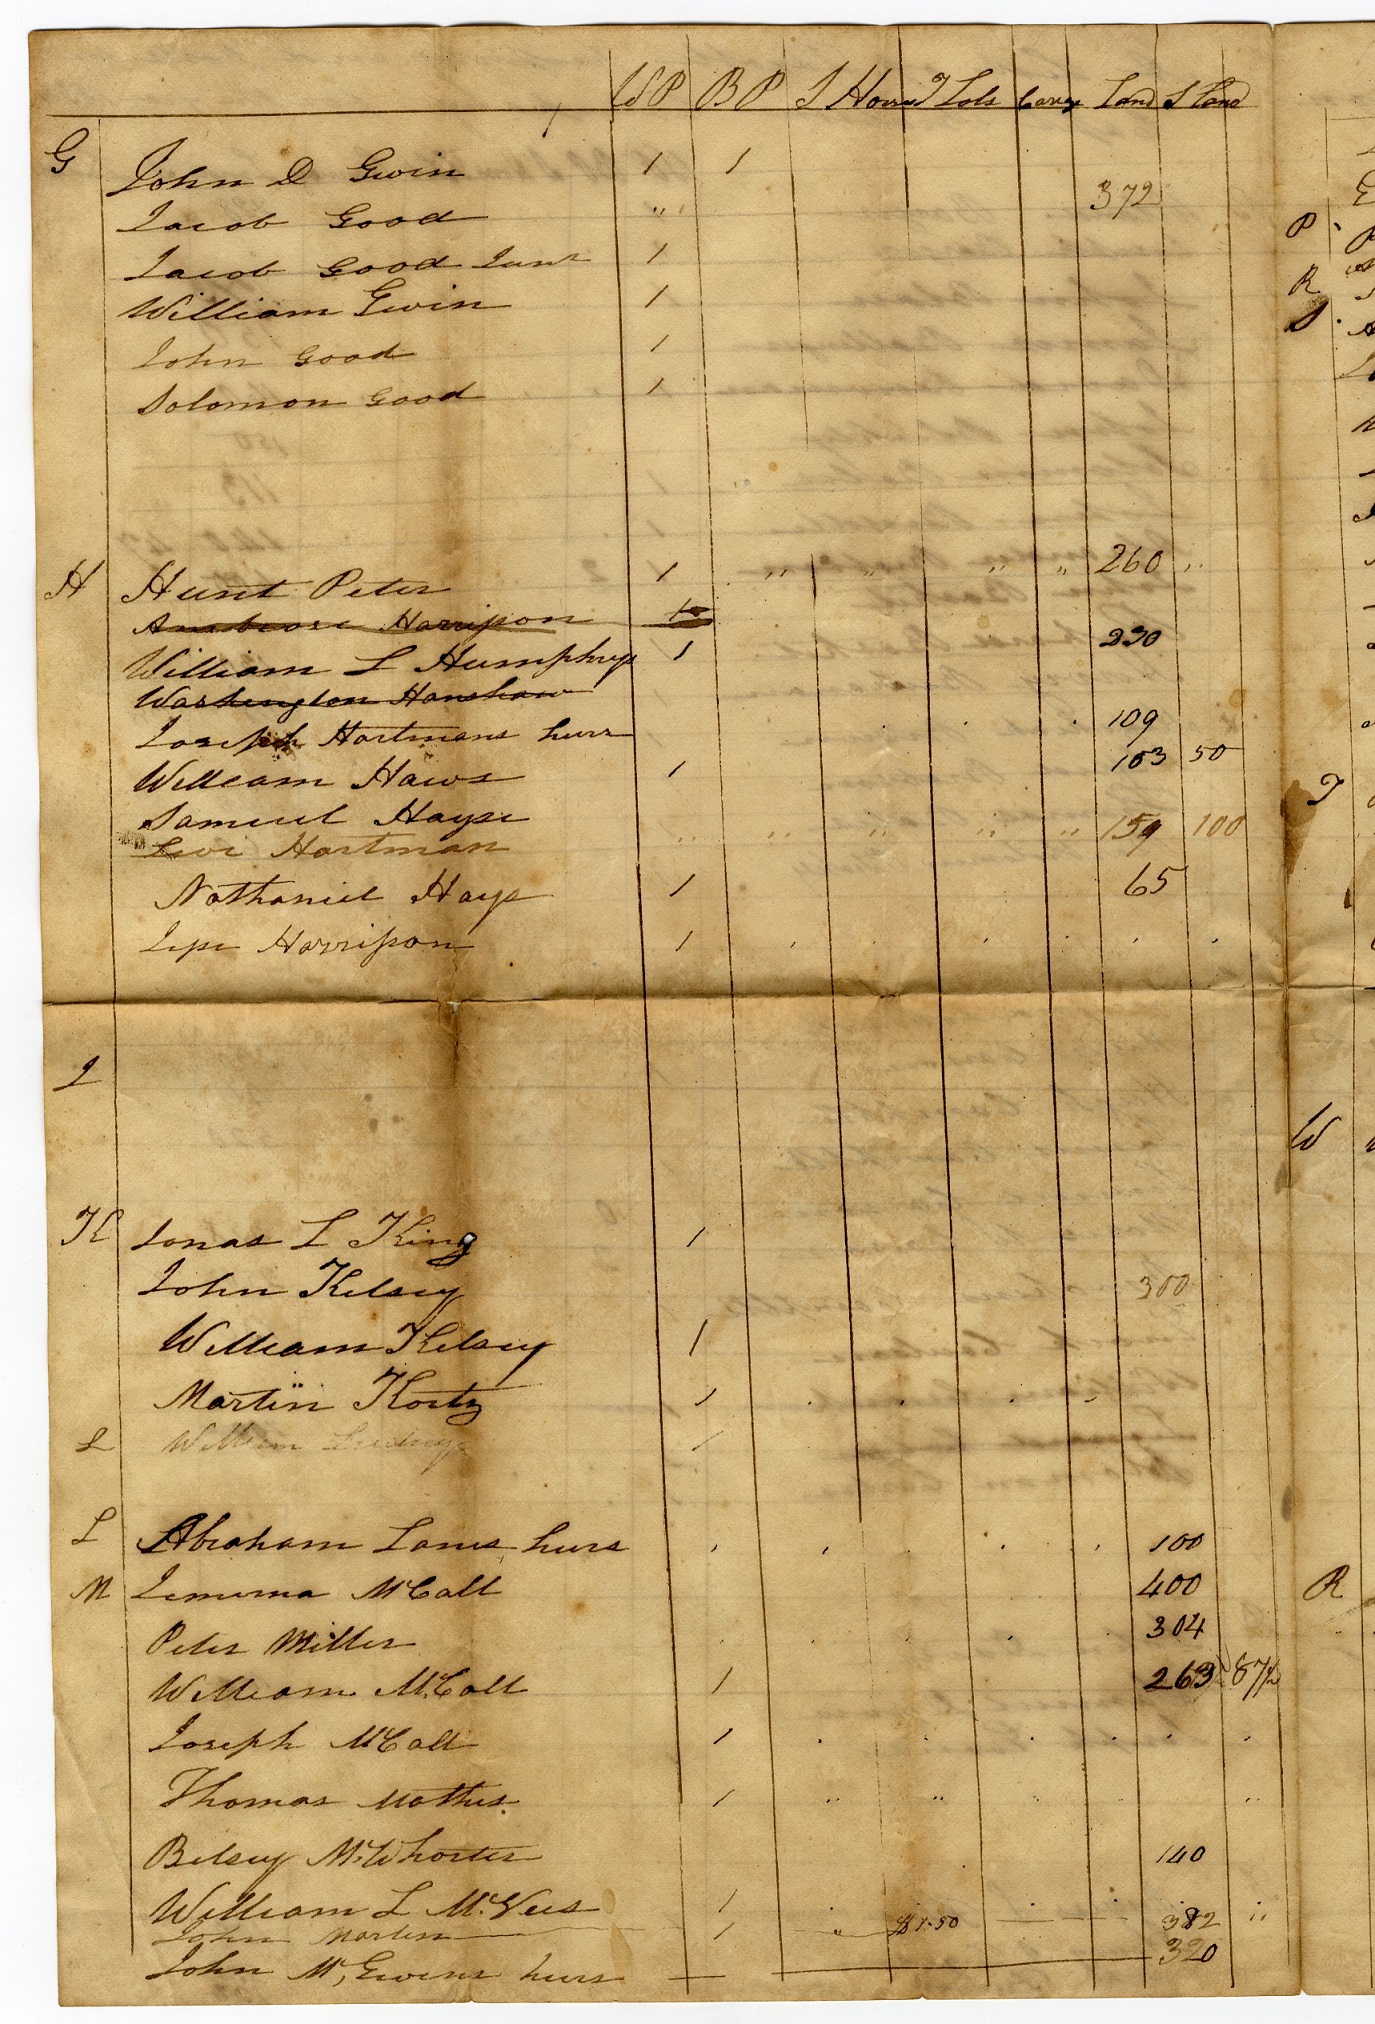 W P B P S Horses T Lots Carrg Land S Land
G John D Gwin 1 1
Jacob Good " 372
Jacob Good Junr 1
William Gwin 1
John Good 1
Solomon Good 1
H Hunt Peter 1 " " " " 260 "
Ambrose Harrison
William L Humphrys 1 230
Washington Hanshaw
Joseph Hartmans heirs 109
William Haws 1 103 50
Samuel Hayse
Levi Hartman " " " " " 159 100
Nathaniel Hays 1 65
Jesse Harrison 1
I
K Jonas L King 1
John Kelsey 300
William Kelsey 1
Martin Kortz 1
L William 1
L Abraham Lanes heirs 100
M Jemima McCall 400
Peter Miller 304
William McCall 1 263 87½
Joseph McCall 1
Thomas Mathes 1 " " "
Betsey McWhorter 140
William L McVees 1
John Martin 1 " $1.50 382 "
John McEwens heirs 320
P
R
S
T
W
R